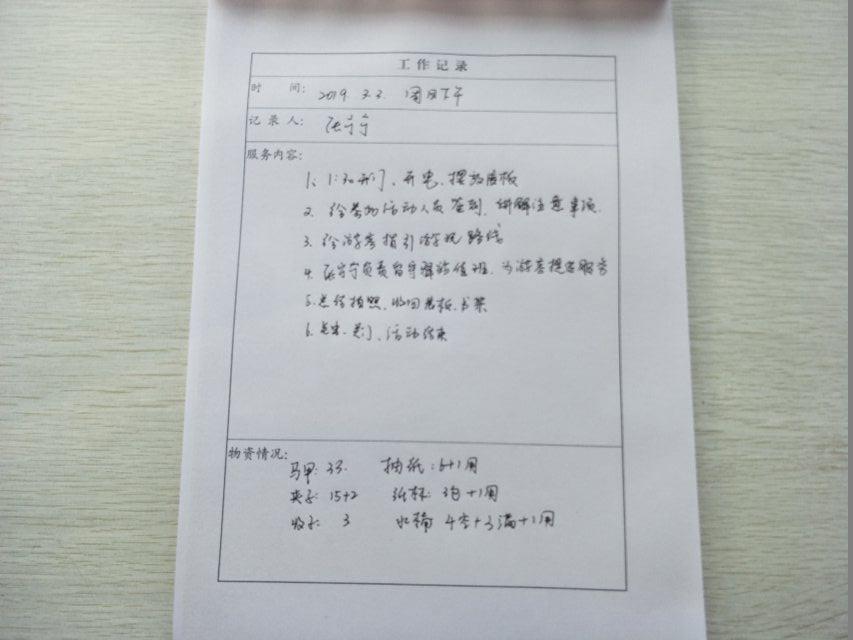 工作记录
时 间: 2019. 3.2. 周六下午
记录人: 张宁宁
服务内容:
1、1:30开门、开电、摆放展板
2、给参加活动人员签到、讲解注意事项.
3、给游客指引游玩路线
4、张宁宁负责留守驿站值班、为游客提供服务
5、总结拍照、收回展板、书架
6、关电、关门、活动结束
物资情况:
马甲: 33. 抽纸: 6+1用
夹子: 15+2 纸杯: 3包+1用
3 水桶 4空+3满+1用